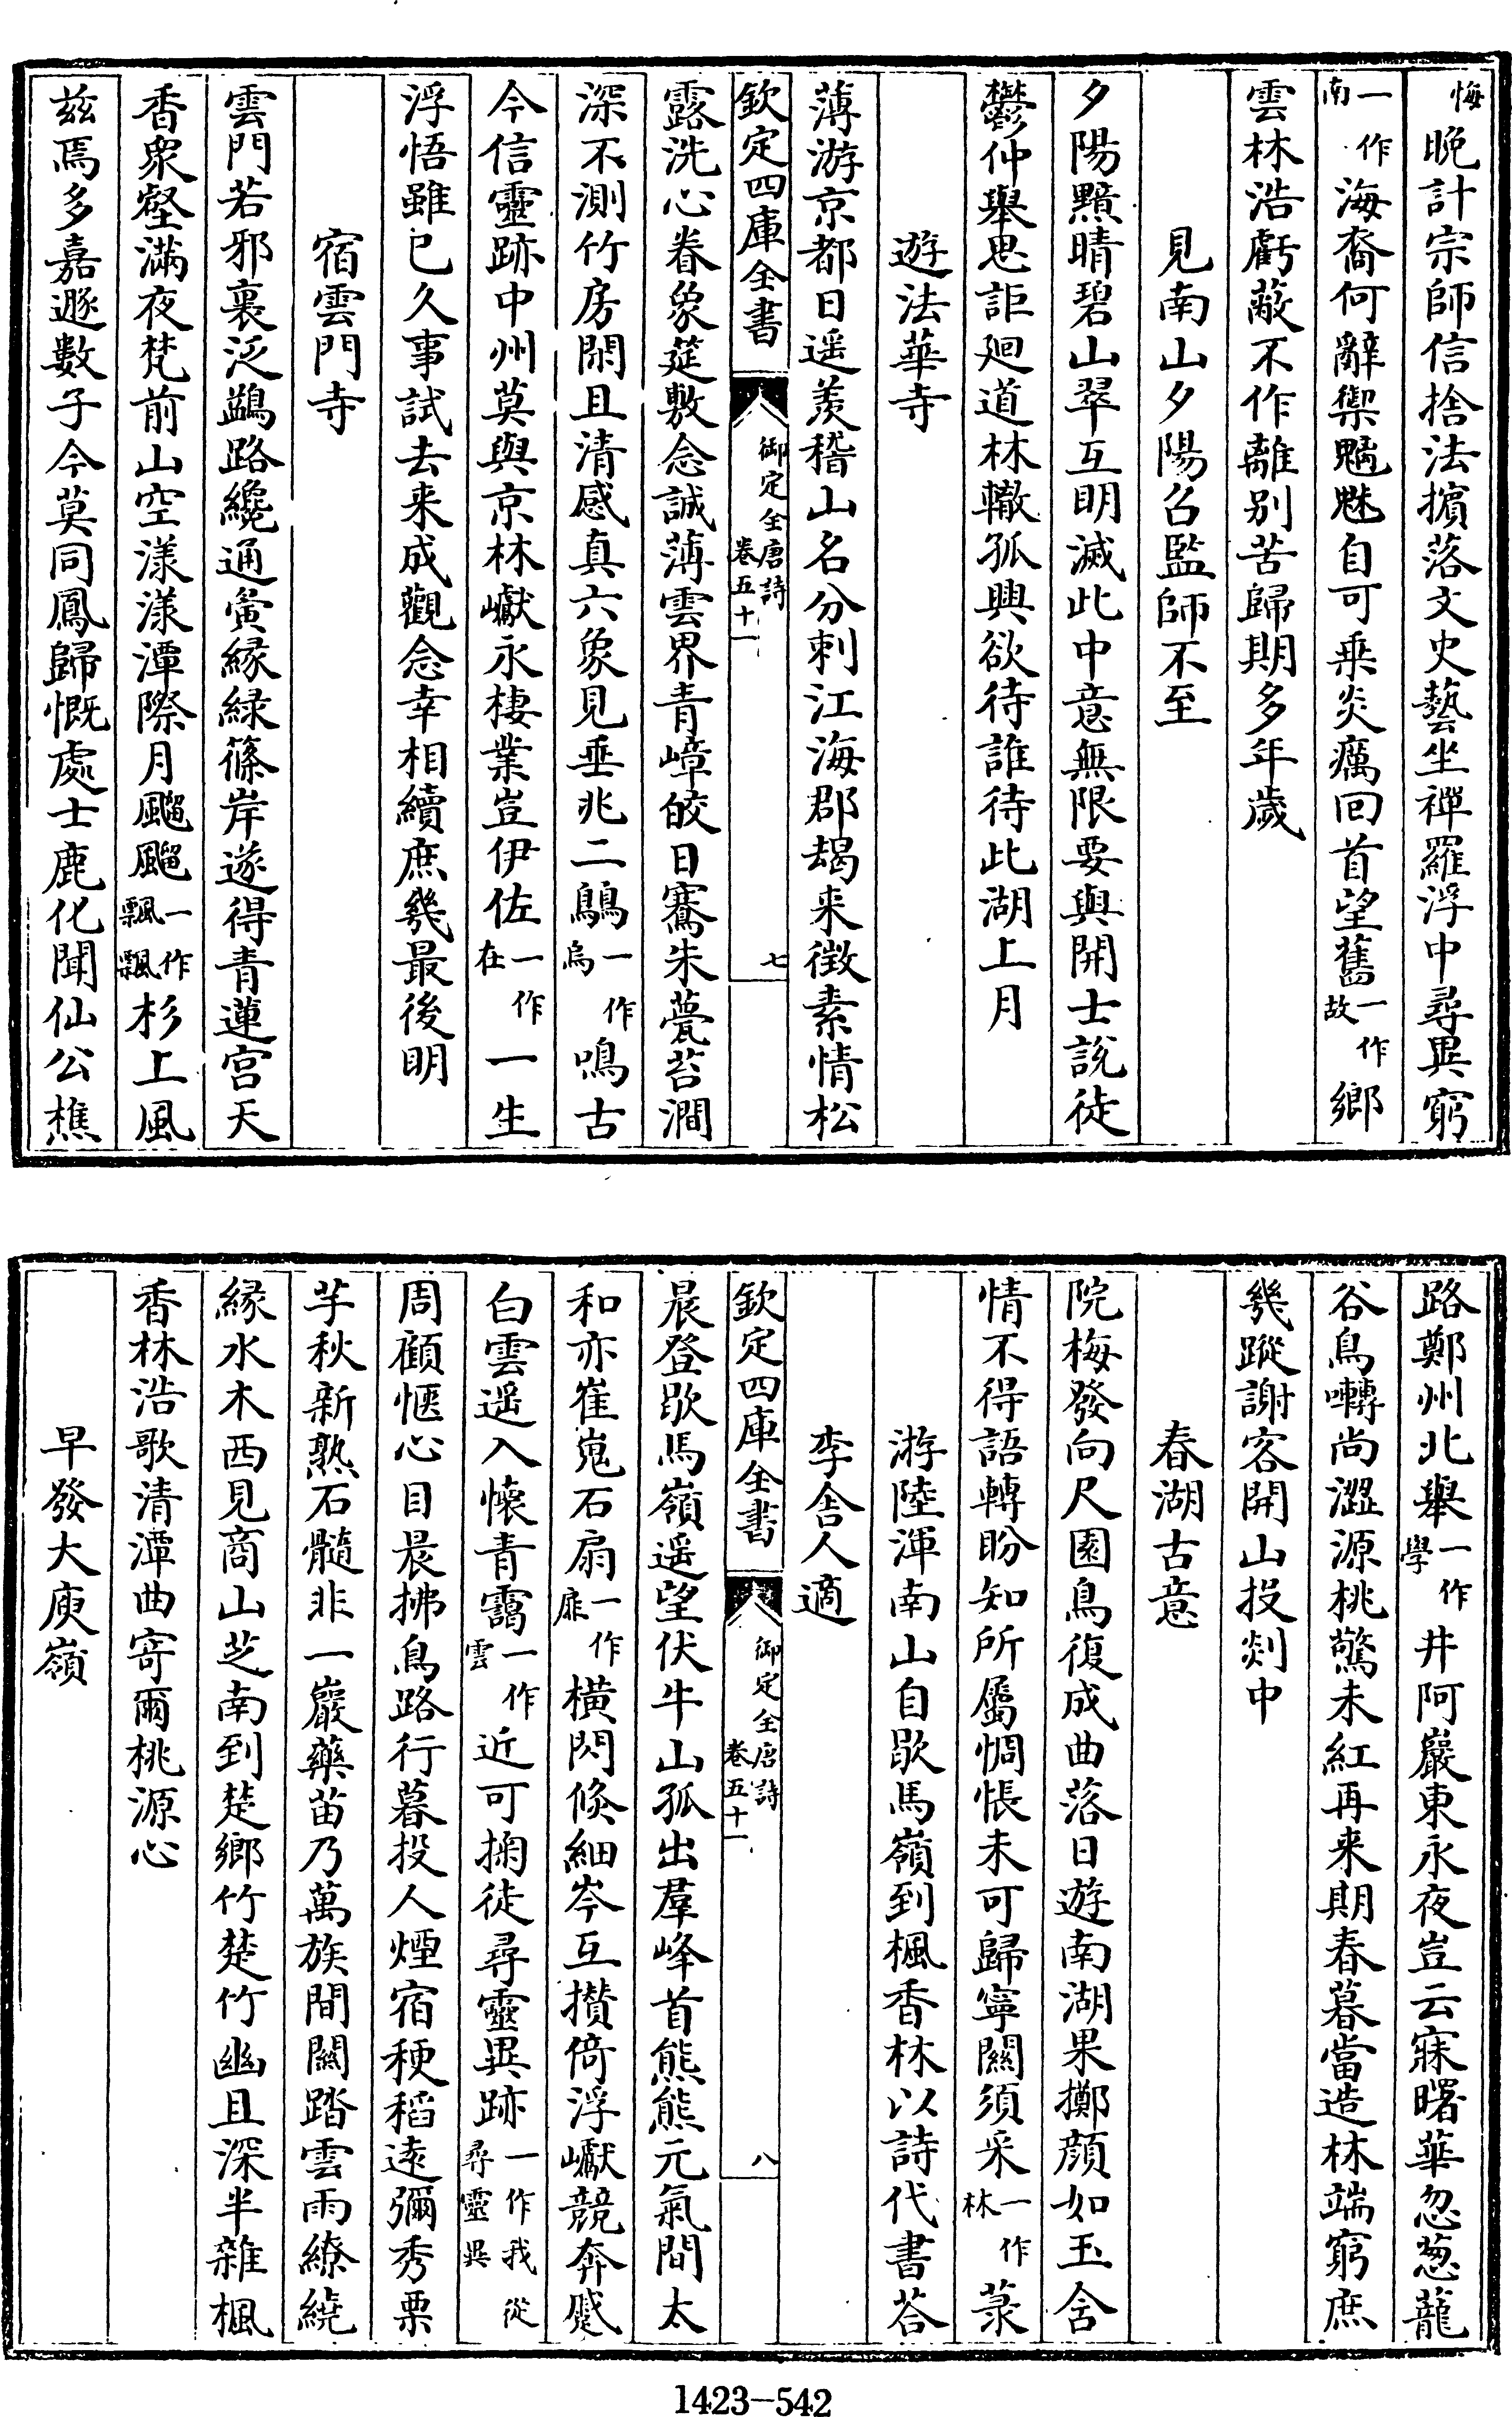 悔晚計宗師信捨法擯落文史藝坐禪羅浮中尋異窮
一作南海裔何辭禦魑魅自可乘炎癘回首望舊一作故鄉
雲林浩虧蔽不作離别苦歸期多年歲
見南山夕陽召監師不至
夕陽黯晴碧山翠互明滅此中意無限要與開士說徒
鬱仲舉思詎廻道林轍孤興欲待誰待此湖上月
遊法華寺
薄游京都日遥羨稽山名分刺江海郡朅来徵素情松
欽定四庫全書
御定全唐詩
卷五十一
七
露洗心眷象筵敷念誠薄雲界青嶂皎日騫朱甍苔澗
深不測竹房閒且清感真六象見垂兆二鷱一作烏鳴古
今信靈跡中州莫與京林巘永棲業豈伊佐一作在一生
浮悟雖已久事試去来成觀念幸相續庶幾最後明
宿雲門寺
雲門若邪裏泛鷁路纔通夤緣緑篠岸遂得青蓮宮天
香衆壑滿夜梵前山空漾漾潭際月飀飀一作飄飄杉上風
兹焉多嘉遯數子今莫同鳳歸慨處士鹿化聞仙公樵
路鄭州北舉一作學井阿巖東永夜豈云寐曙華忽葱蘢
谷鳥囀尚澀源桃驚未紅再来期春暮當造林端窮庶
幾蹤謝客開山投剡中
春湖古意
院梅發向尺園鳥復成曲落日遊南湖果擲顔如玉含
情不得語轉盼知所屬惆悵未可歸寧關須采一作林菉
游陸渾南山自歇馬嶺到楓香林以詩代書荅
李舍人適
晨登歇馬嶺遥望伏牛山孤出羣峰首熊熊元氣間太
欽定四庫全書
御定全唐詩
卷五十一
八
和亦崔嵬石扇一作扉横閃倐細岑互攅倚浮巘競奔蹙
白雲遥入懷青靄一作雲近可掬徒尋靈異跡一作我從尋靈異
周顧愜心目晨拂鳥路行暮投人煙宿稉稻遠彌秀栗
芋秋新熟石髓非一巖藥苗乃萬族間關踏雲雨繚繞
縁水木西見商山芝南到楚鄉竹楚竹幽且深半雜楓
香林浩歌清潭曲寄爾桃源心
早發大庾嶺
1423-542